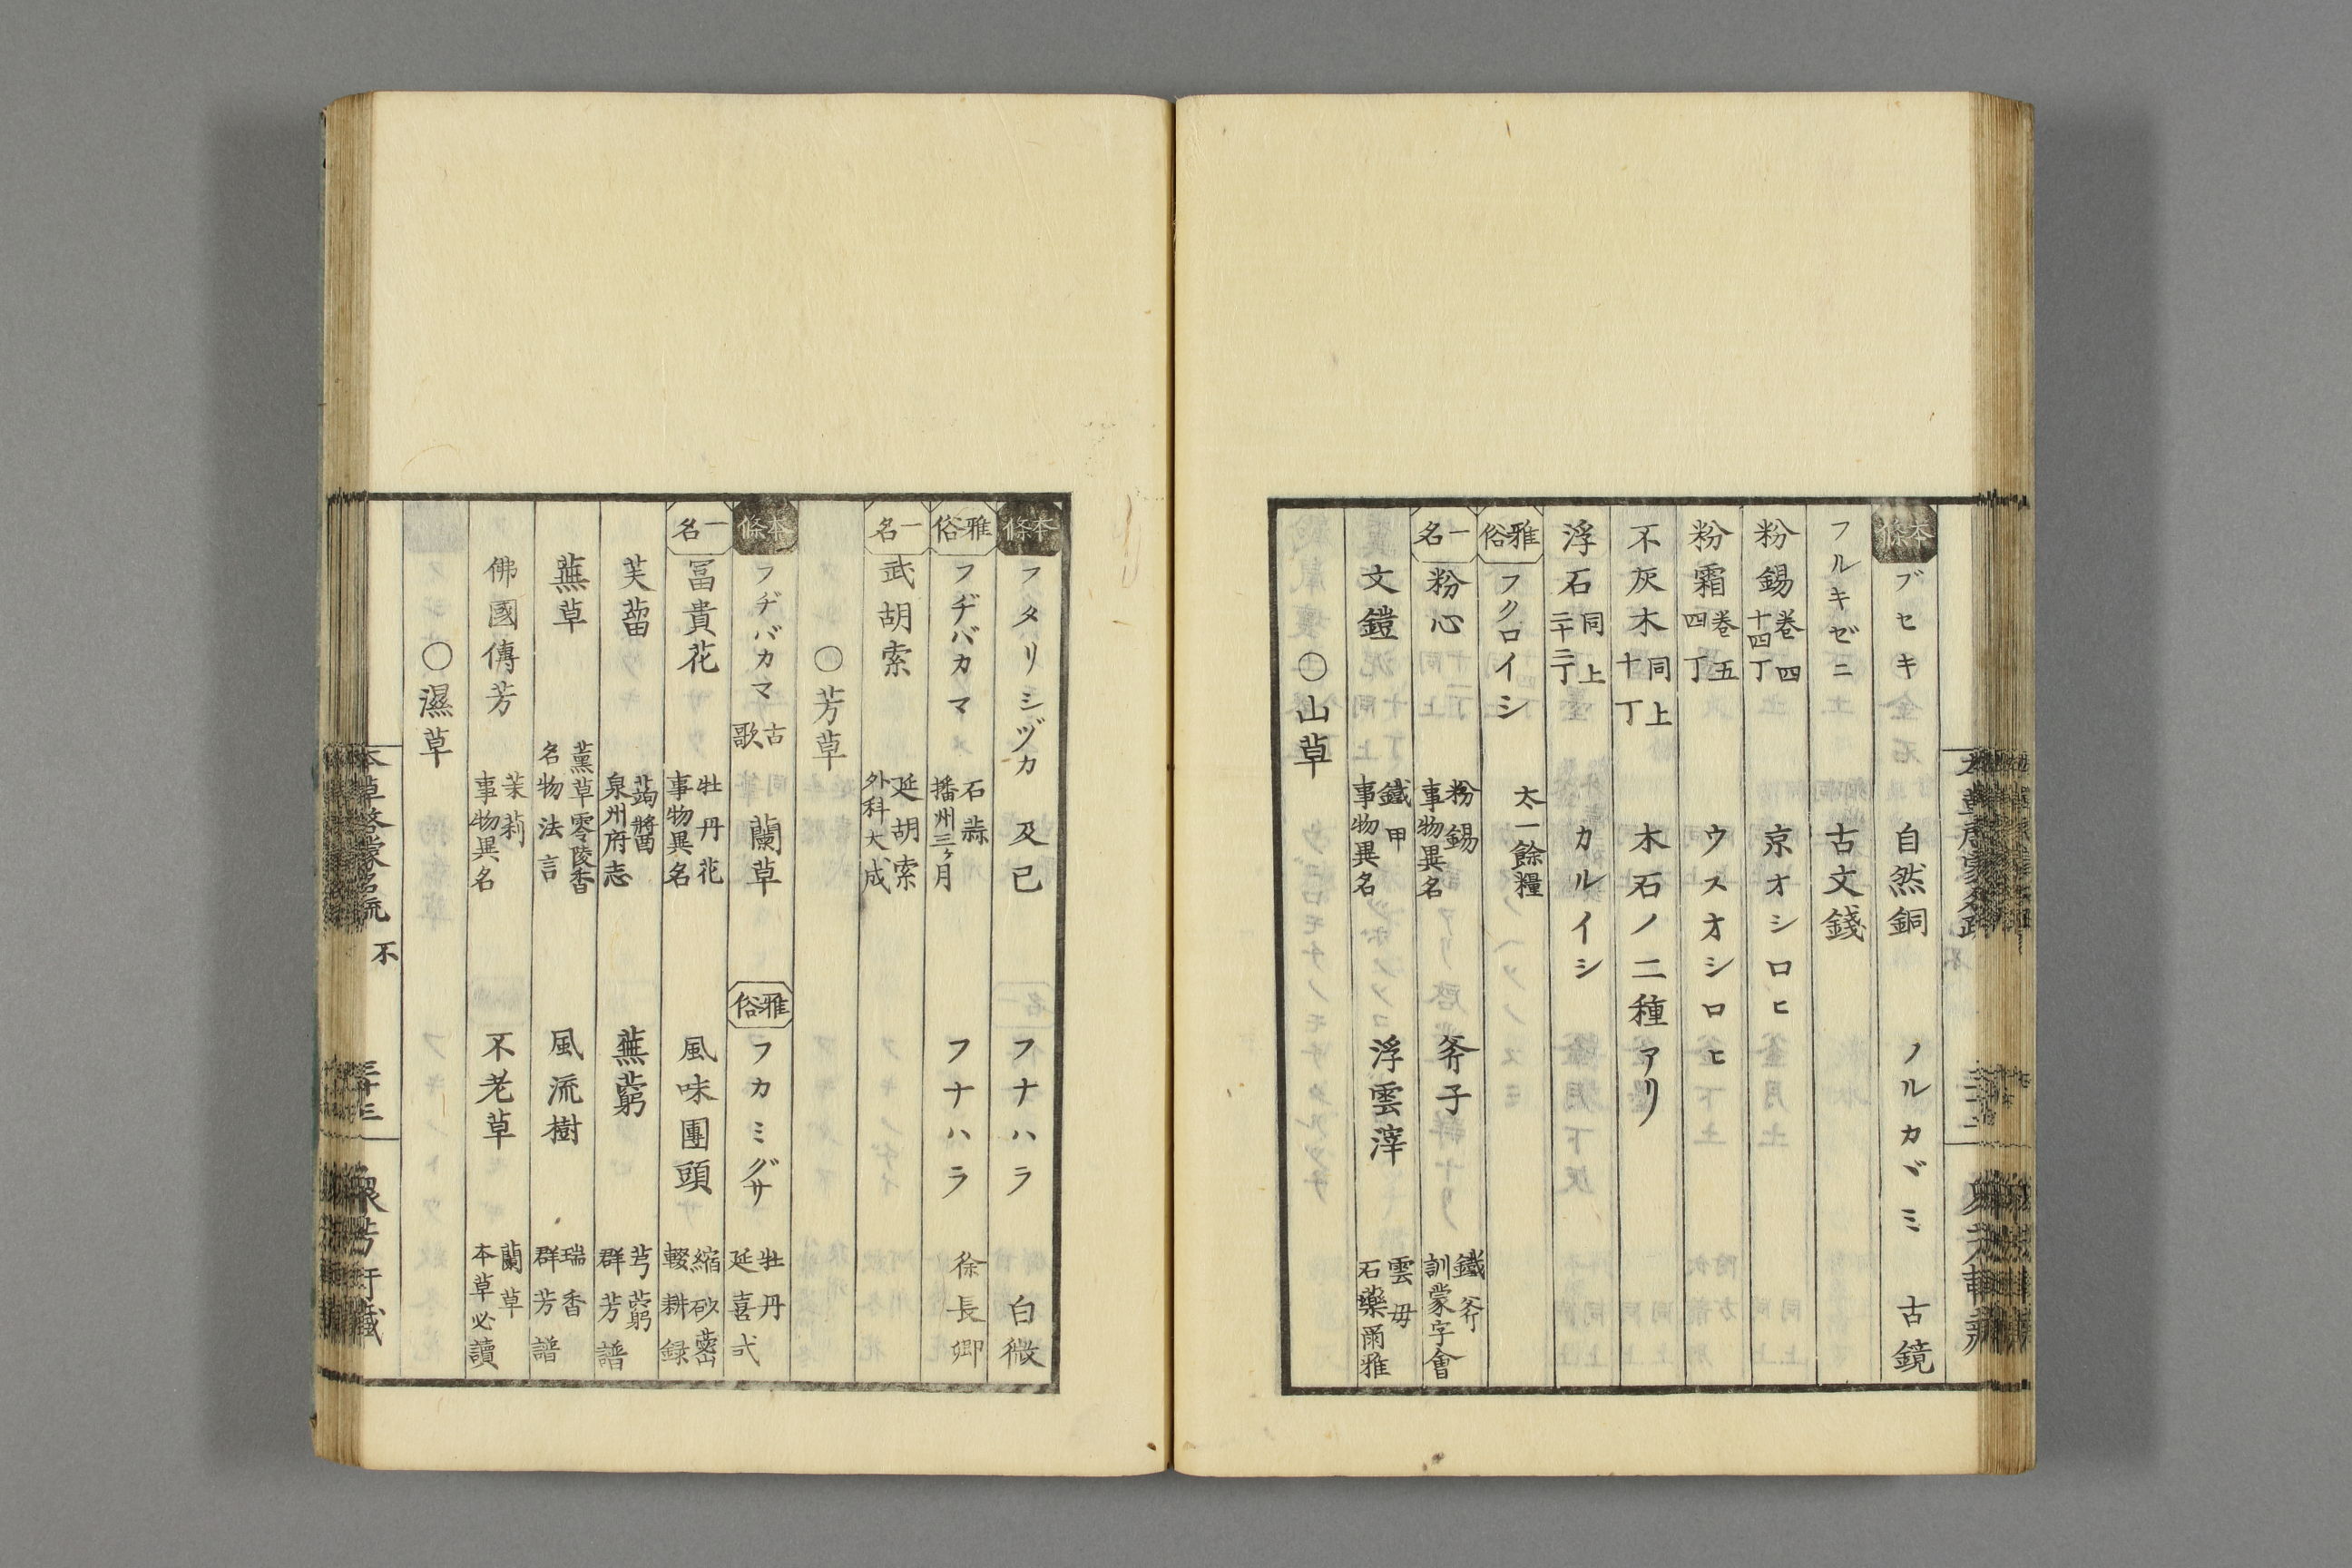 本條 ブセキ 自然銅 フルカヾミ 古鏡
フルキゼニ 古文錢
粉錫 卷四 十四丁 京オシロヒ
粉霜 卷五 四丁 ウスオシロヒ
不灰木 同上 十丁 木石ノ二種アリ
浮石 同上 二十二丁 カルイシ
雅俗 フクロイシ 太一餘糧
一名 粉心 粉錫 事物異名 斧子 鐵斧 訓蒙字會
文鎧 鐵甲 事物異名 浮雲滓 雲母 石藥爾雅
○山草
本條 フタリシヅカ 及已 フナハラ 白微
雅俗 フヂバカマ 石蒜 播州三ヶ月 フナハラ 徐長卿
一名 武胡索 延胡索 外科大成
○芳草
本條 フヂバカマ 古歌 蘭草 雅俗 フカミグサ 牡丹 延喜式
一名 冨貴花 牡丹花 事物異名 風味團頭 縮砂蔤 輟耕録
芙蕾 蒟醬 泉州府志 蕪藭 芎藭 群芳譜
蕪草 薰草零陵香 名物法言 風流樹 瑞香 群芳譜
佛國傳芳 茉莉 事物異名 不老草 蘭草 本草必讀
○濕草
本草啓蒙名疏 不 三十三 衆芳軒藏